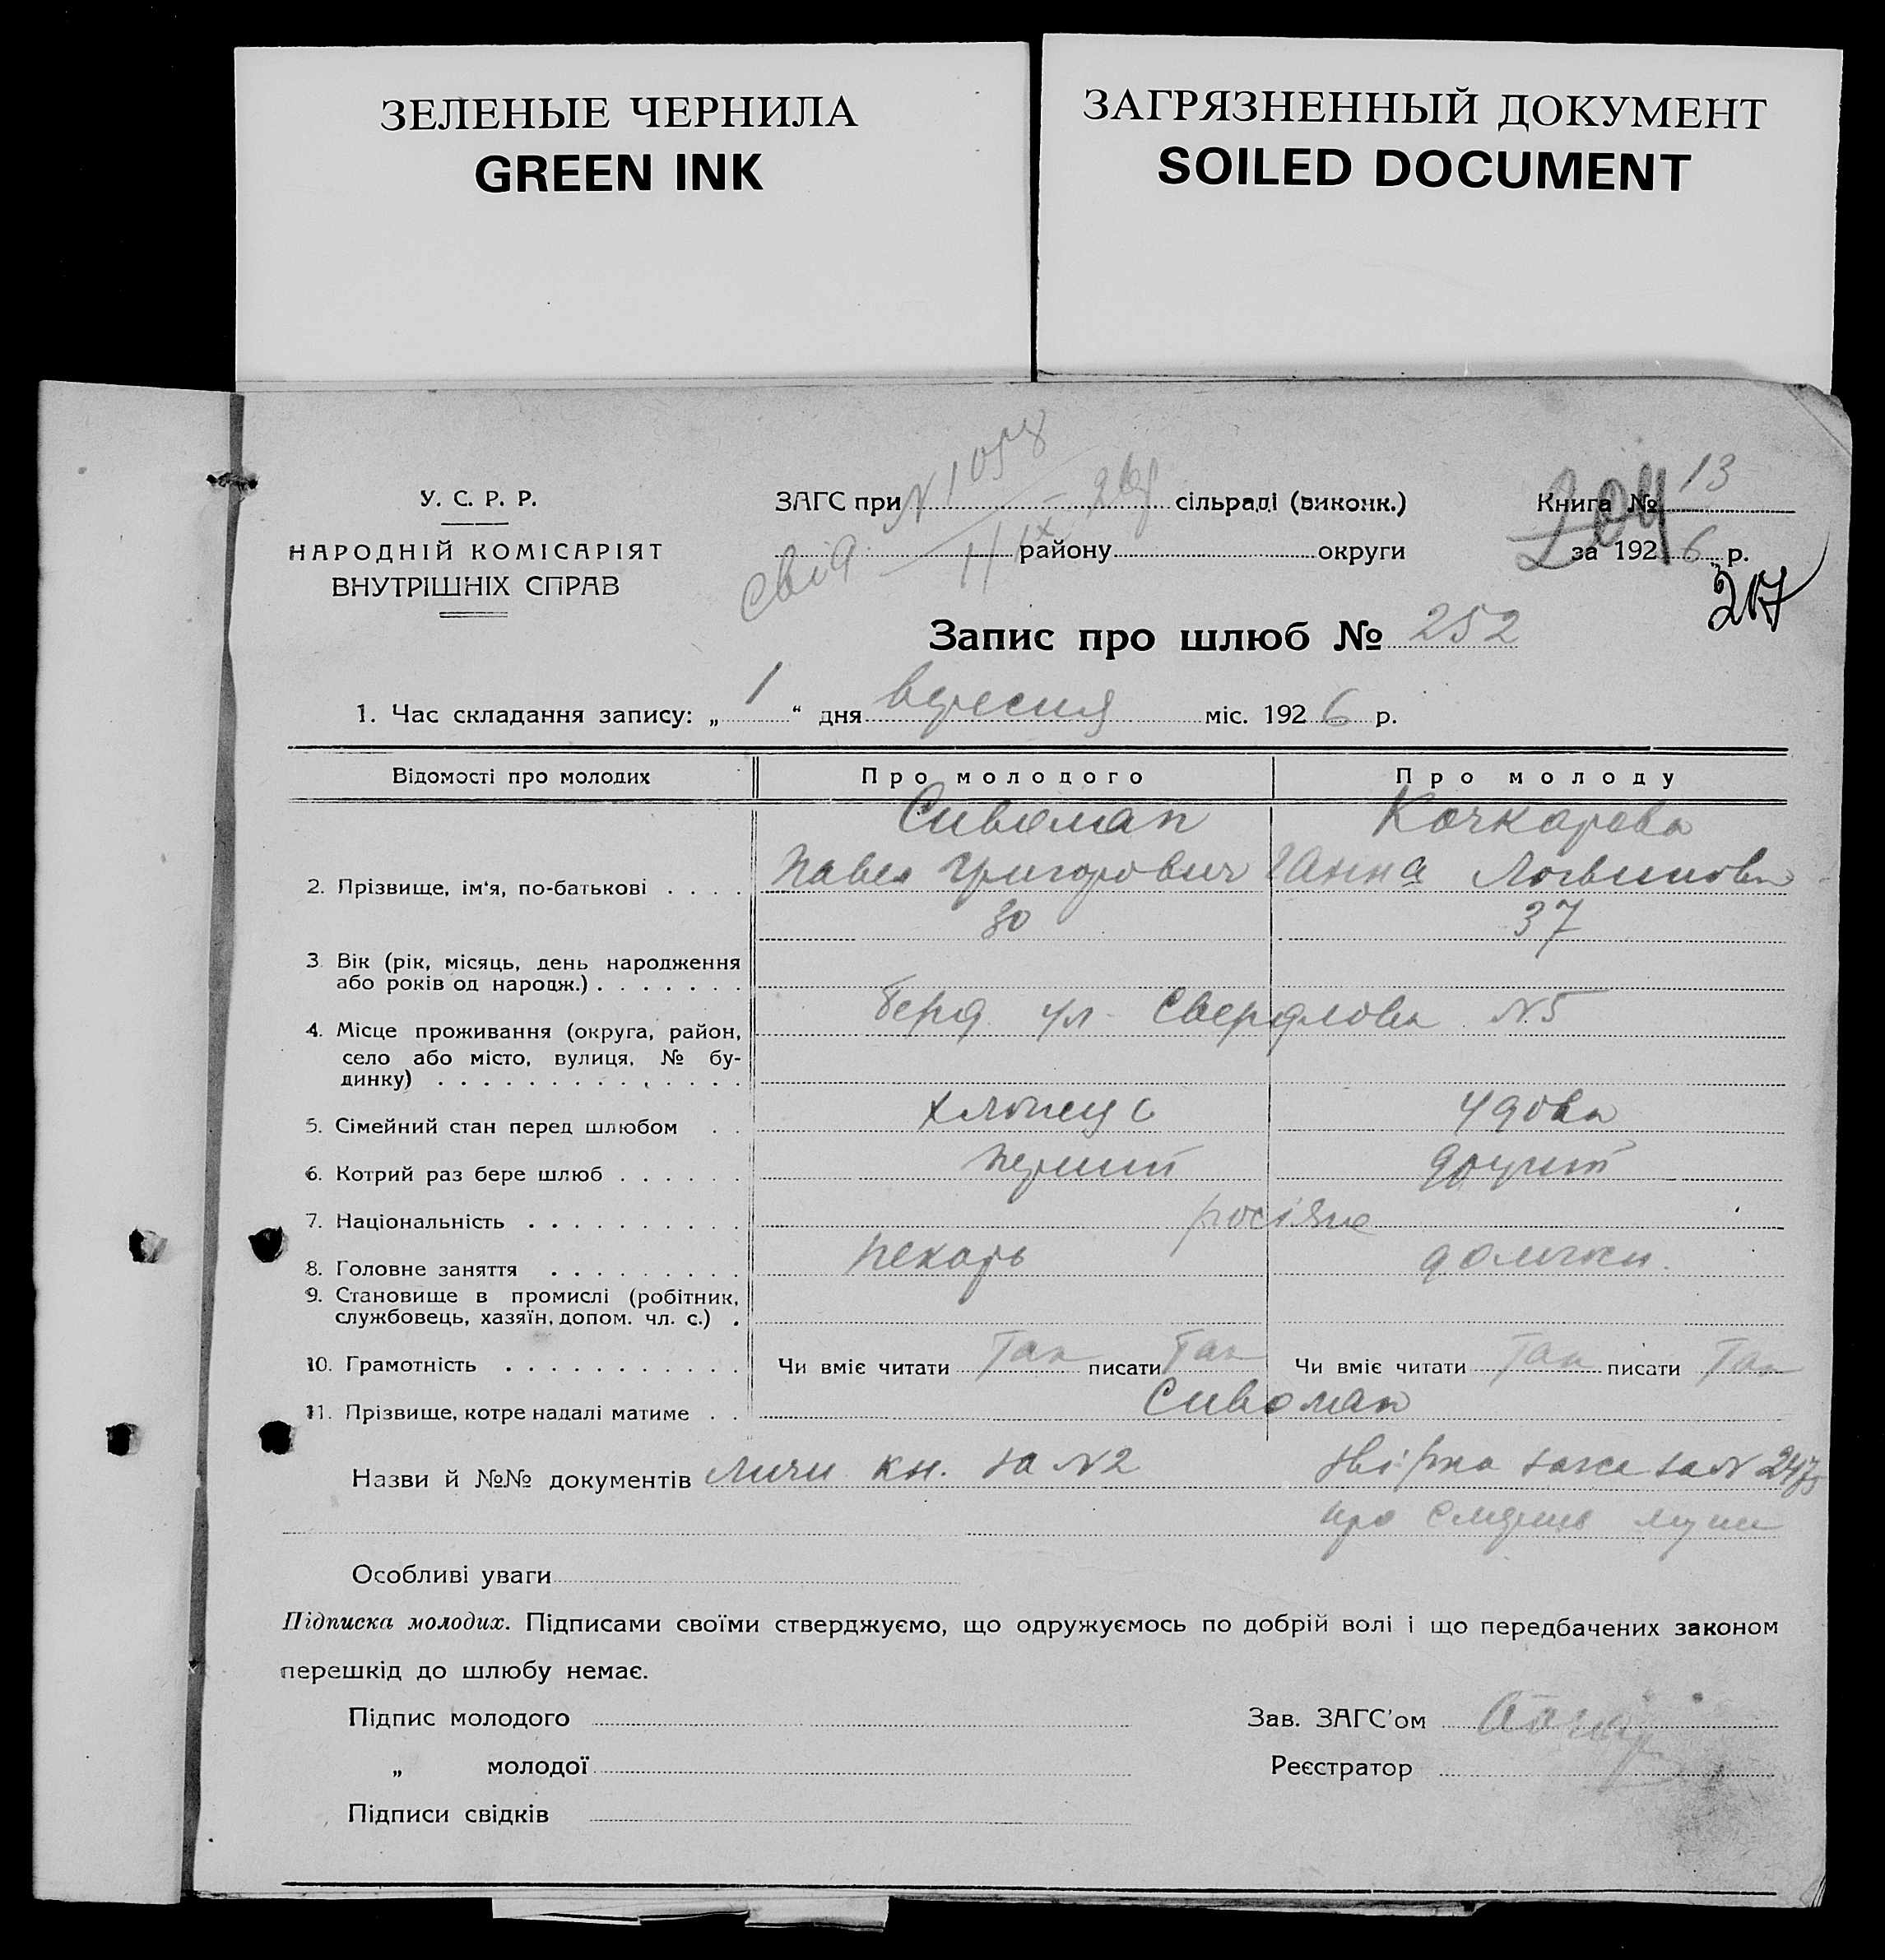 ЗЕЛЕНЫЕ ЧЕРНИЛА
GREEN INK
ЗАГРЯЗНЕННЫЙ ДОКУМЕНТ
SOILED DOCUMENT
У. С. Р. Р.
НАРОДНІЙ КОМІСАРІЯТ
ВНУТРІШНІХ СПРАВ
ЗАГС при сільраді (виконк.)
району округи
свід N 1058
11/IX-26р
Книга № 13
за 1926 р.
204
217
Запис про шлюб № 252
1. Час складання запису: „1“ дня вересня міс. 1926 р.
Відомості про молодих Про молодого Про молоду
Сивоман Кочкарева
2. Прізвище, ім'я, по-батькові Павел Григорович Ганна Логвинова
30 37
3. Вік (рік, місяць, день народження
або років од народж.)
Берд ул. Свердлова N5
4. Місце проживання (округа, район,
село або місто, вулиця, № бу-
динку)
5. Сімейний стан перед шлюбом хлопець удова
6. Котрий раз бере шлюб перший другий
7. Національність росіяне
8. Головне заняття пекарь
9. Становище в промислі (робітник,
службовець, хазяїн, допом. чл. с.)
10. Грамотність Чи вміє читати Так писати Так Чи вміє читати Так писати Так
11. Прізвище, котре надалі матиме Сивоман
Назви й №№ документів кн. за N2 за N 2475
про смерть
Особливі уваги
Підписка молодих. Підписами своїми стверджуємо, що одружуємось по добрій волі і що передбачених законом
перешкід до шлюбу немає.
Підпис молодого Зав. ЗАГС'ом
„ молодої Реєстратор
Підписи свідків